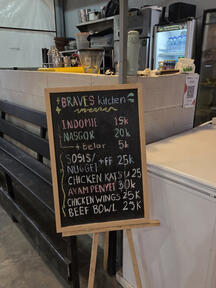 BRAVES kitchen
INDOMIE 15k
NASGOR 20k
+ telor 5k
SOSIS/ NUGGET +FF 25k
CHICKEN KATSU 25
AYAM PENYET 30k
CHICKEN WINGS 25k
BEEF BOWL 25k